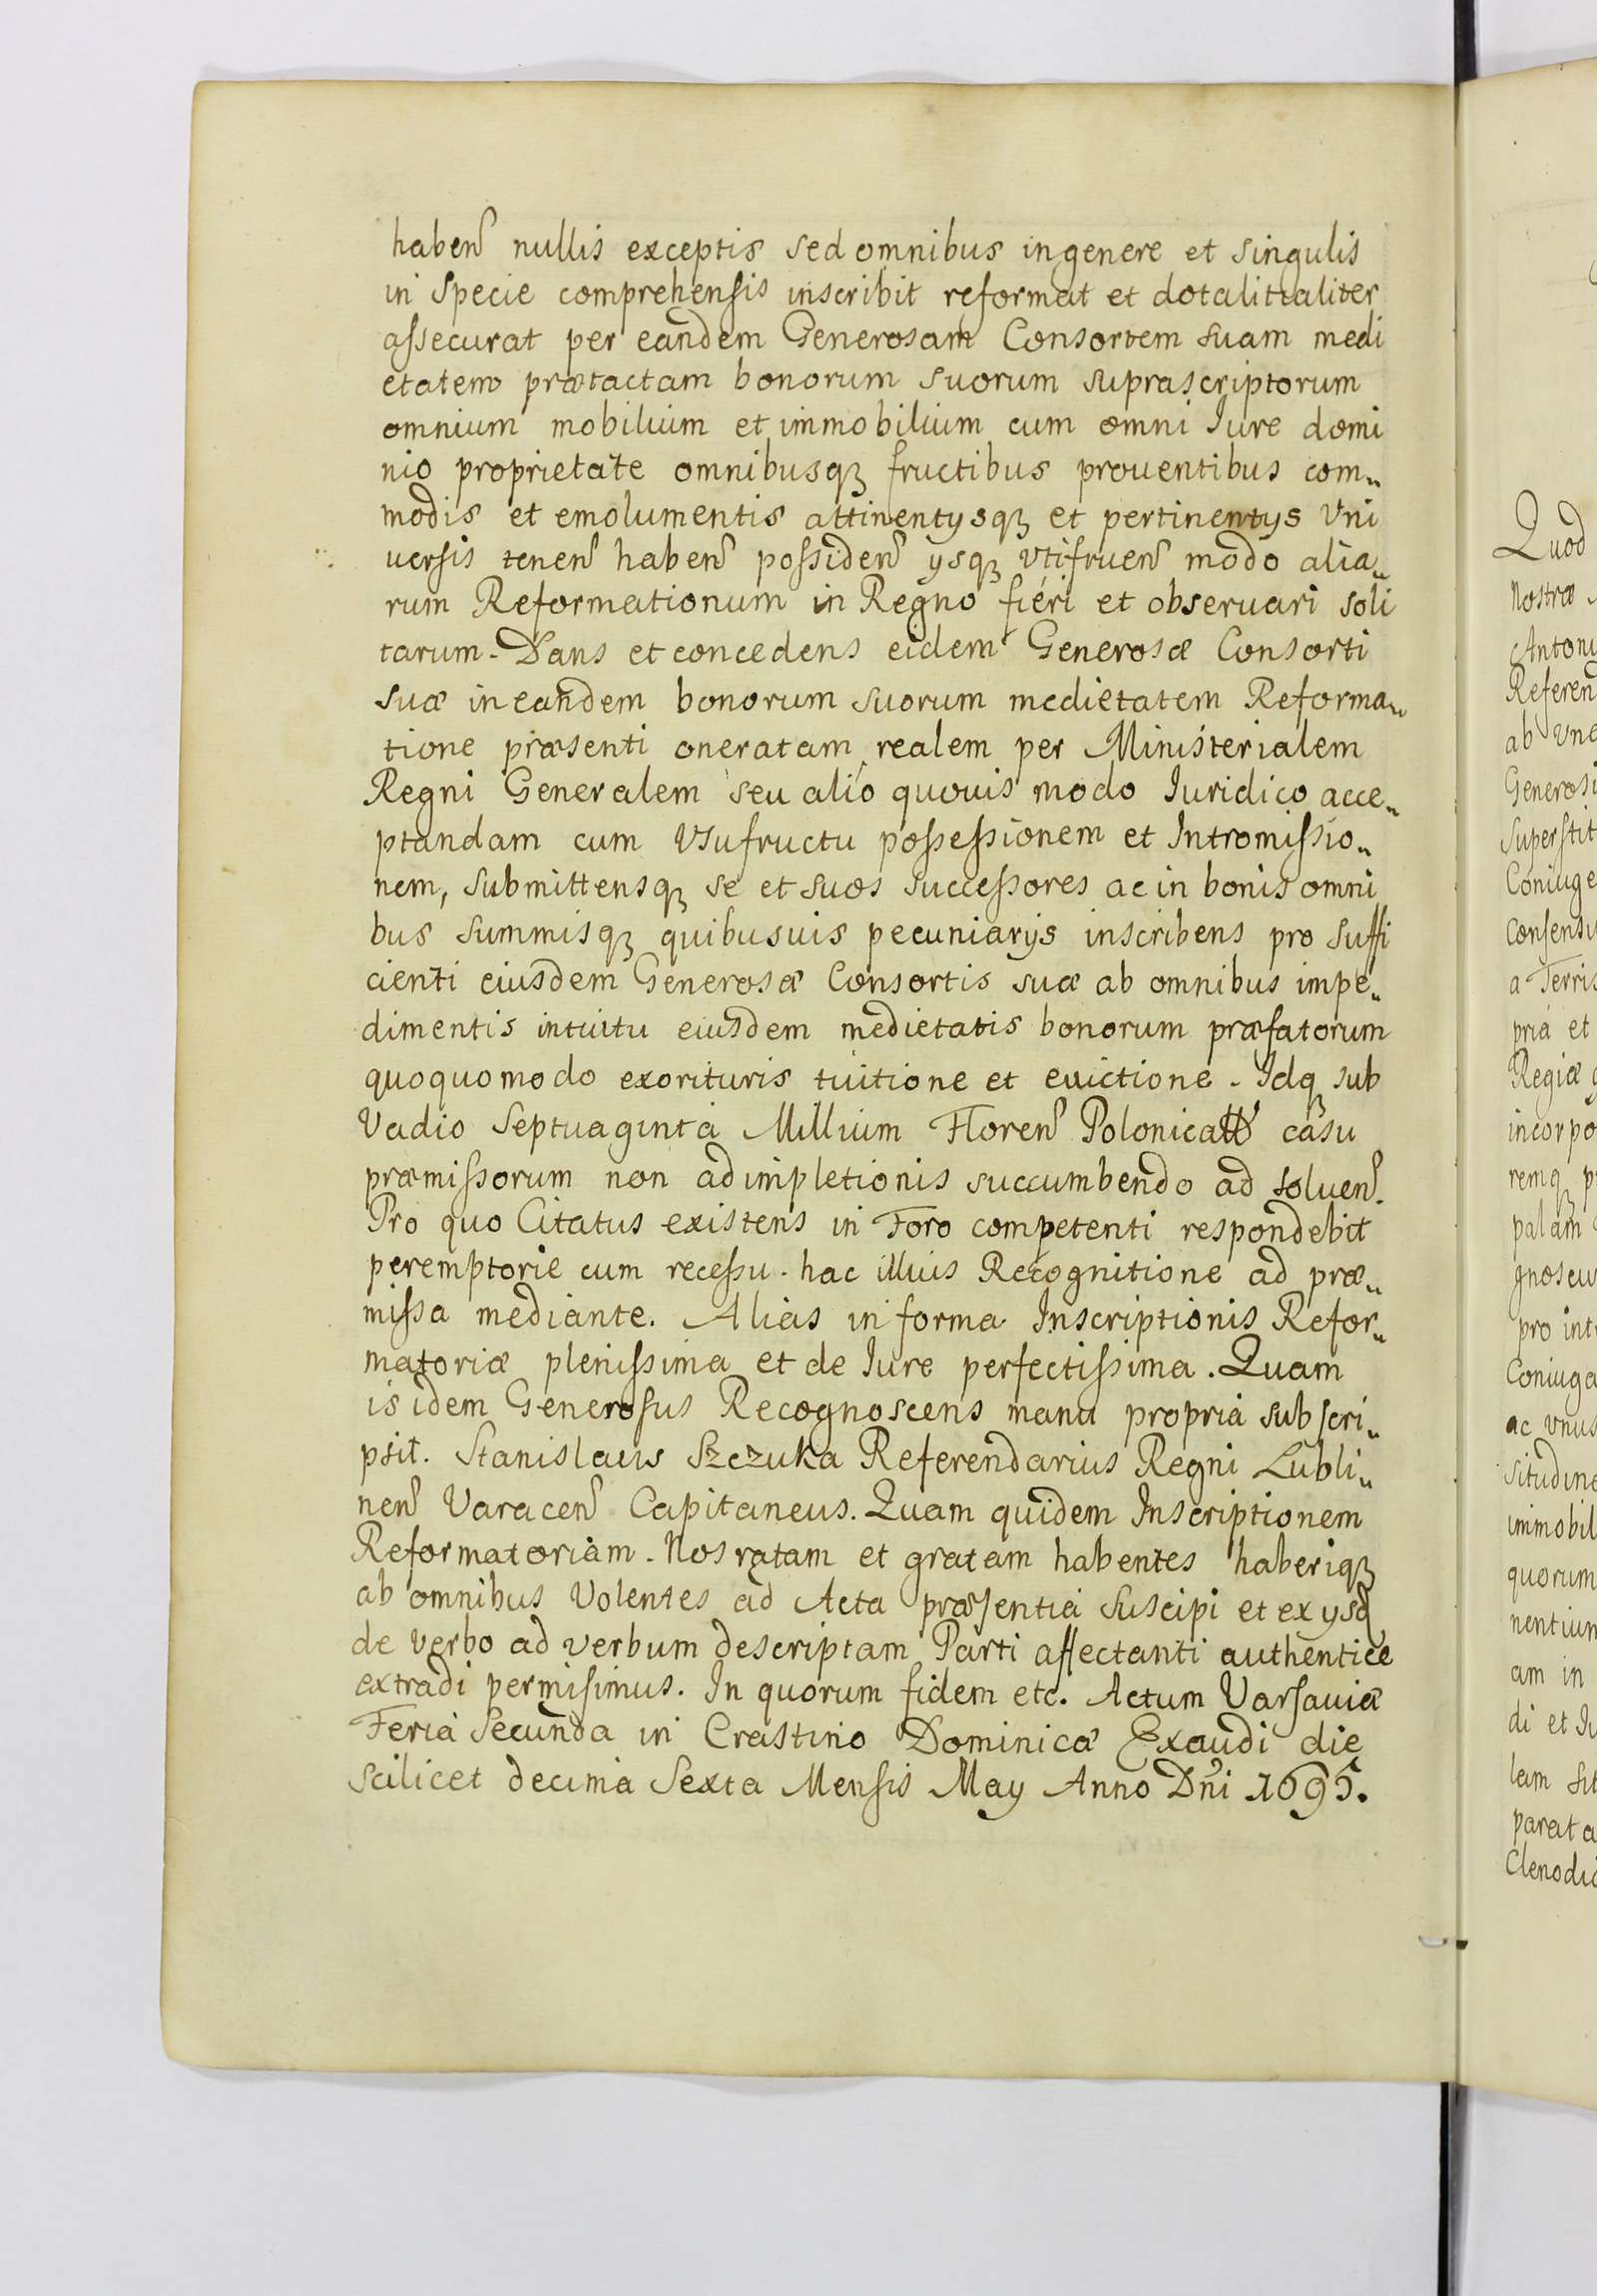 habenꝭ nullis exceptis sed omnibus in genere et singulis
in specie comprehensis inscribit reformat et dotalitialiter
assecurat per eandem Generosam Consortem suam medi
etatem prætactam bonorum suorum suprascriptorum
omnium mobilium et immobilium cum omni Iure domi
nio proprietate omnibusqꝫ fructibus prouentibus com„
modis et emolumentis attinentysqꝫ et pertinentys Vni
uersis tenenꝭ habenꝭ possidenꝭ ysqꝫ vtifruenꝭ modo alia„
rum Reformationum in Regno fieri et obseruari soli
tarum. Dans et concedens eidem Generosæ Consorti
suæ in eandem bonorum suorum medietatem Reforma„
tione præsenti oneratam realem per Ministerialem
Regni Generalem seu alio quouis modo Iuridico acce„
ptandam cum Vsufructu possessionem et Intromissio„
nem, submittensqꝫ se et suos successores ac in bonis omni
bus summisqꝫ quibusuis pecuniarijs inscribens pro suffi
cienti eiusdem Generosæ Consortis suæ ab omnibus impe„
dimentis intuitu eiusdem medietatis bonorum præfatorum
quoquomodo exorituris tuitione et euictione. Idqꝫ sub
Vadio Septuaginta Millium Florenꝭ Polonica casu
præmissorum non adimpletionis succumbendo ad soluenꝭ.
Pro quo Citatus existens in Foro competenti respondebit
peremptorie cum recessu. hac illius Recognitione ad præ„
missa mediante. Alias in forma Inscriptionis Refor„
matoriæ plenissima et de Iure perfectissima. Quam
is idem Generosus Recognoscens manu propria subscri„
psit. Stanislaus Szczuka Referendarius Regni Lubli„
nenꝭ Varacenꝭ Capitaneus. Quam quidem Inscriptionem
Reformatoriam. Nos ratam et gratam habentes haberiqꝫ
ab omnibus Volentes ad Acta præsentia suscipi et ex ysd
de verbo ad verbum descriptam Parti affectanti authentice
extradi permisimus. In quorum fidem etc. Actum Varsauiæ
Feria Secunda in Crastino Dominicæ Exaudi die
scilicet decima Sexta Mensis May Anno Dni 1695.
Quod
Nostræ
Antoni
Referen
ab Vna
Generosi
superstit
Coniuge
Consensu
a Terris
pria et
Regiæ
incorpo
remqꝫ p
palam
gnoscu
pro int
Coniuga
ac vnus
situdine
immobil
quorum
nentium
am in
di et Iu
lam sit
parata
Clenodi